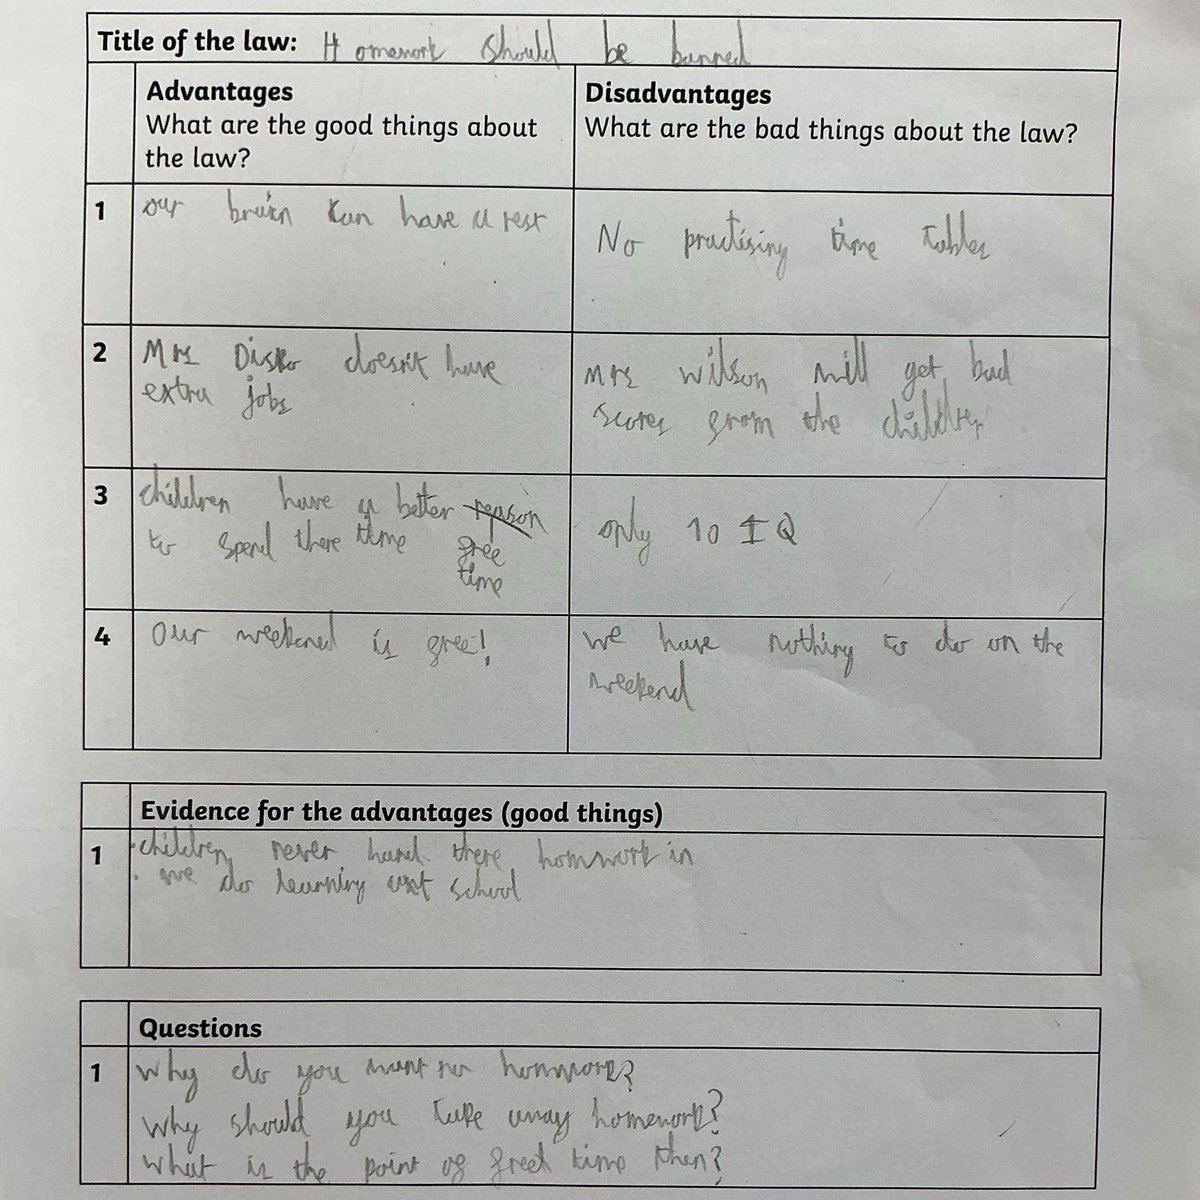 Title of the law: Homework should be banned
Advantages
What are the good things about
the law?
Disadvantages
What are the bad things about the law?
1
our brain can have a rest
No practising time tables
2
Mrs Disko doesn't have
extra jobs
mrs wilson will get bad
scores from the children
3
children have a better reason
to spend there time free
time
only 10 IQ
4
Our weekend is free!
we have nothing to do on the
weekend
Evidence for the advantages (good things)
1
· children never hand there homwork in
· we do learning at school
Questions
1
Why do you want no homwork?
Why should you take away homework?
What is the point of free time then?